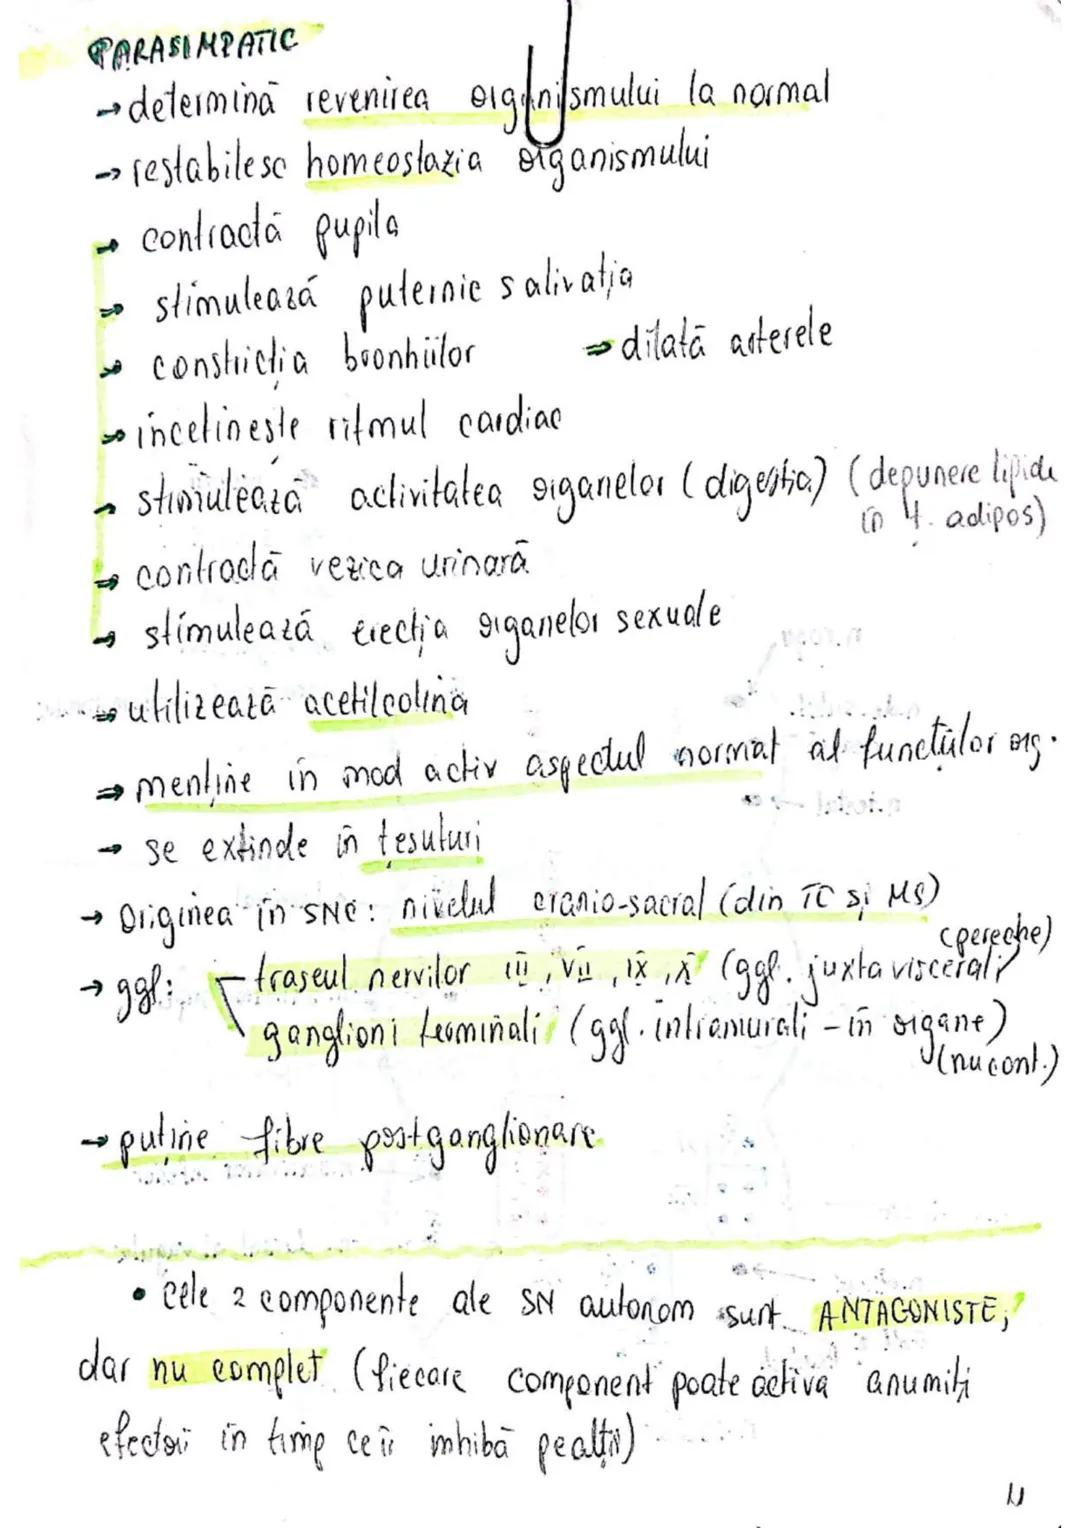 PARASIMPATIC
→ determină revenirea organismului la normal
→ restabilesc homeostazia organismului
→ contractă pupila
→ stimulează puternic salivația
→ constricția bronhiilor → dilată arterele
→ incetinește ritmul cardiac
→ stimulează activitatea organelor (digestia) (depunere lipide
în ț. adipos)
→ contractă vezica urinară
→ stimulează erecția organelor sexuale
→ utilizează acetilcolina
→ menține in mod activ aspectul normal al funcțiilor org.
→ se extinde în țesuturi
→ Originea în SNC: nivelul cranio-sacral (din TC și MS)
(pereche)
→ ggl: - traseul nervilor III, VII, IX, X (ggl. juxtaviscerali)
ganglioni terminali (ggl. intramurali - în organe)
(nu cont.)
→ puține fibre postganglionare
• Cele 2 componente ale SN autonom sunt ANTAGONISTE,
dar nu complet (fiecare component poate activa anumiți
efectori în timp ce îi inhibă pe alții)